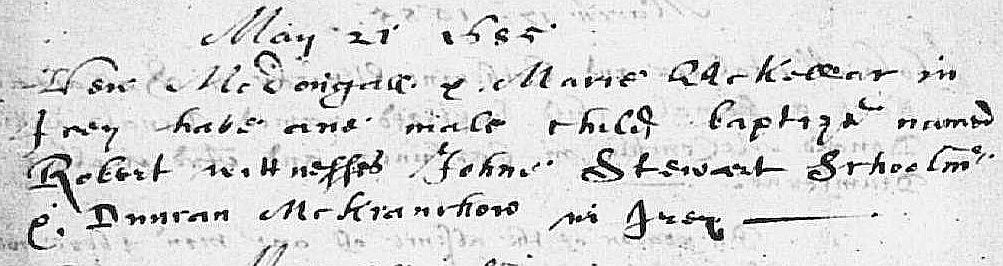 May 21 1685
Hew McDougall & Marie McKellar in
Irey have ane male child baptized named
Robert wittnesses Johne Stewart Schoolmr.
& Duncan in Irey